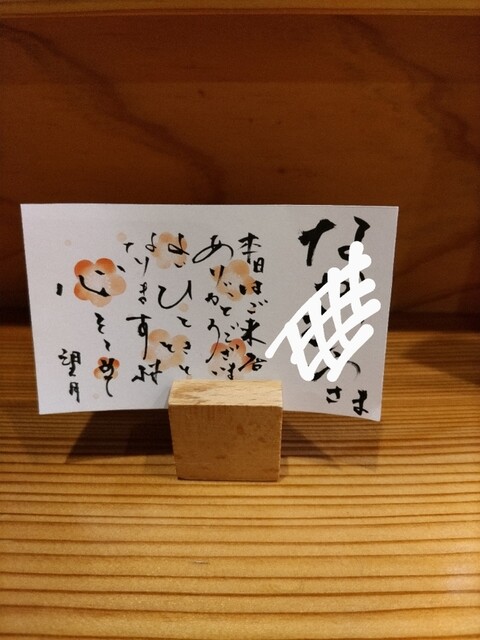 な さま
本日はご来店
ありがとうございま
よきひとときと
なりますよ
心をこめて
望月